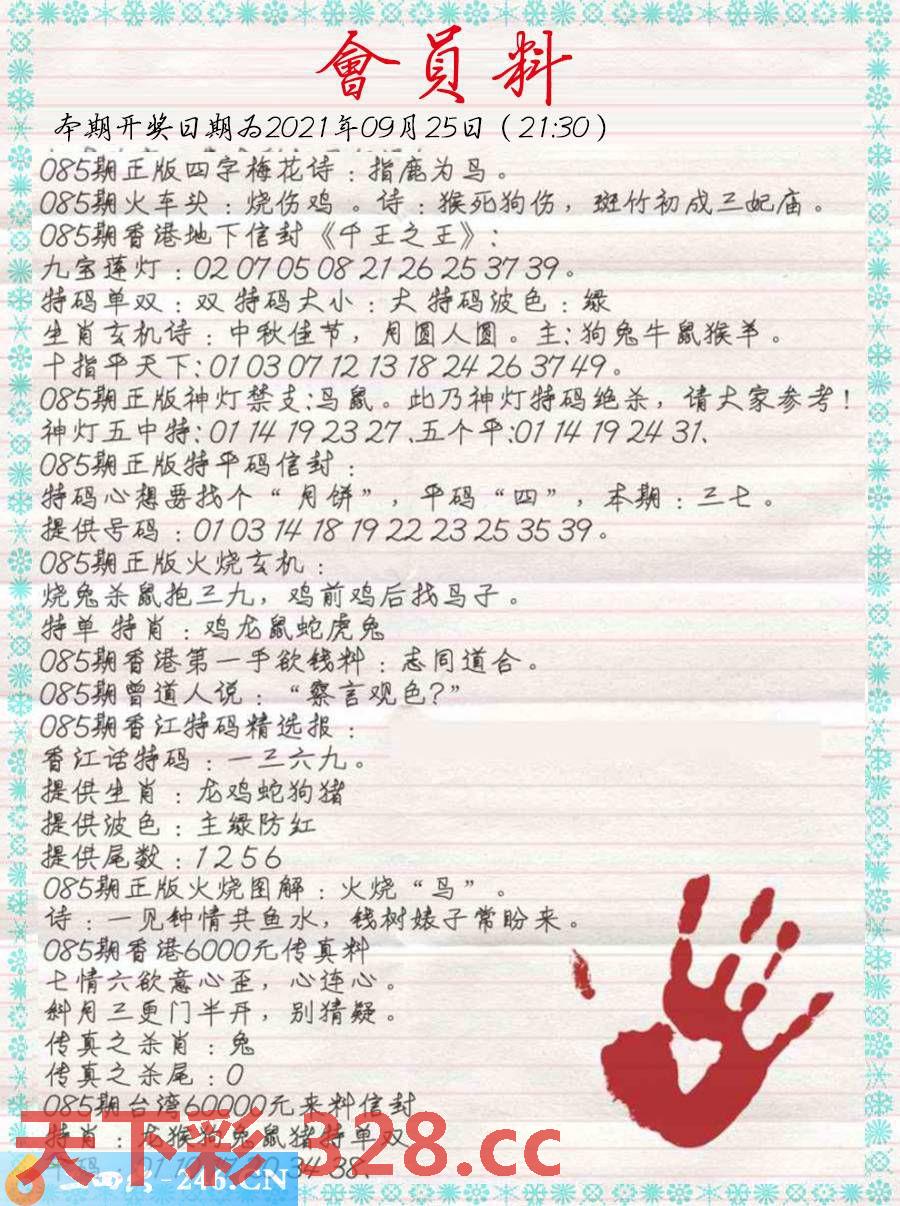 會員料
本期开奖日期为2021年09月25日（21:30）
085期正版四字梅花诗：指鹿为马。
085期火车头：烧伤鸡 。诗：猴死狗伤，斑竹初成三妃庙。
085期香港地下信封《千王之王》：
九宝莲灯：02 07 05 08 21 26 25 37 39。
特码单双：双 特码大小：大 特码波色：绿
生肖玄机诗：中秋佳节，月圆人圆。主：狗兔牛鼠猴羊。
十指平天下：01 03 07 12 13 18 24 26 37 49。
085期正版神灯禁支：马鼠。此乃神灯特码绝杀，请大家参考！
神灯五中特：01 14 19 23 27、五个平：01 14 19 24 31、
085期正版特平码信封：
特码心想要找个“月饼”，平码“四”，本期：三七。
提供号码：01 03 14 18 19 22 23 25 35 39。
085期正版火烧玄机：
烧兔杀鼠抱三九，鸡前鸡后找马子。
特单 特肖：鸡龙鼠蛇虎兔
085期香港第一手欲钱料：志同道合。
085期曾道人说：“察言观色?”
085期香江特码精选报：
香江话特码：一三六九。
提供生肖：龙鸡蛇狗猪
提供波色：主绿防红
提供尾数：1 2 5 6
085期正版火烧图解：火烧“马”。
诗：一见钟情共鱼水，钱树婊子常盼来。
085期香港6000元传真料
七情六欲意心歪，心连心。
斜月三更门半开，别猜疑。
传真之杀肖：兔
传真之杀尾：0
085期台湾60000元来料信封
特肖：龙猴狗兔鼠猪特单双
34 38、
天下彩 328.cc
-246.CN